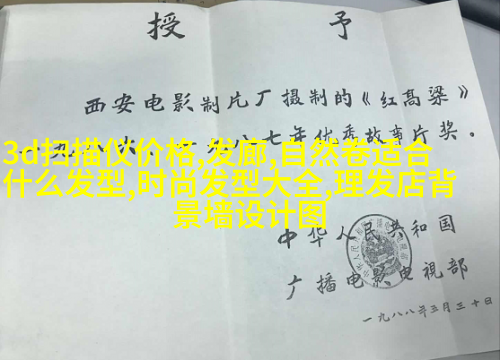 授予
西安电影制片厂摄制的《红高粱》
八七年优秀故事片奖。
3d扫描仪价格,发廊,自然卷适合
什么发型,时尚发型大全,理发店背
景墙设计图
中华人民共和国
广播电影电视部
一九八八年三月三十日